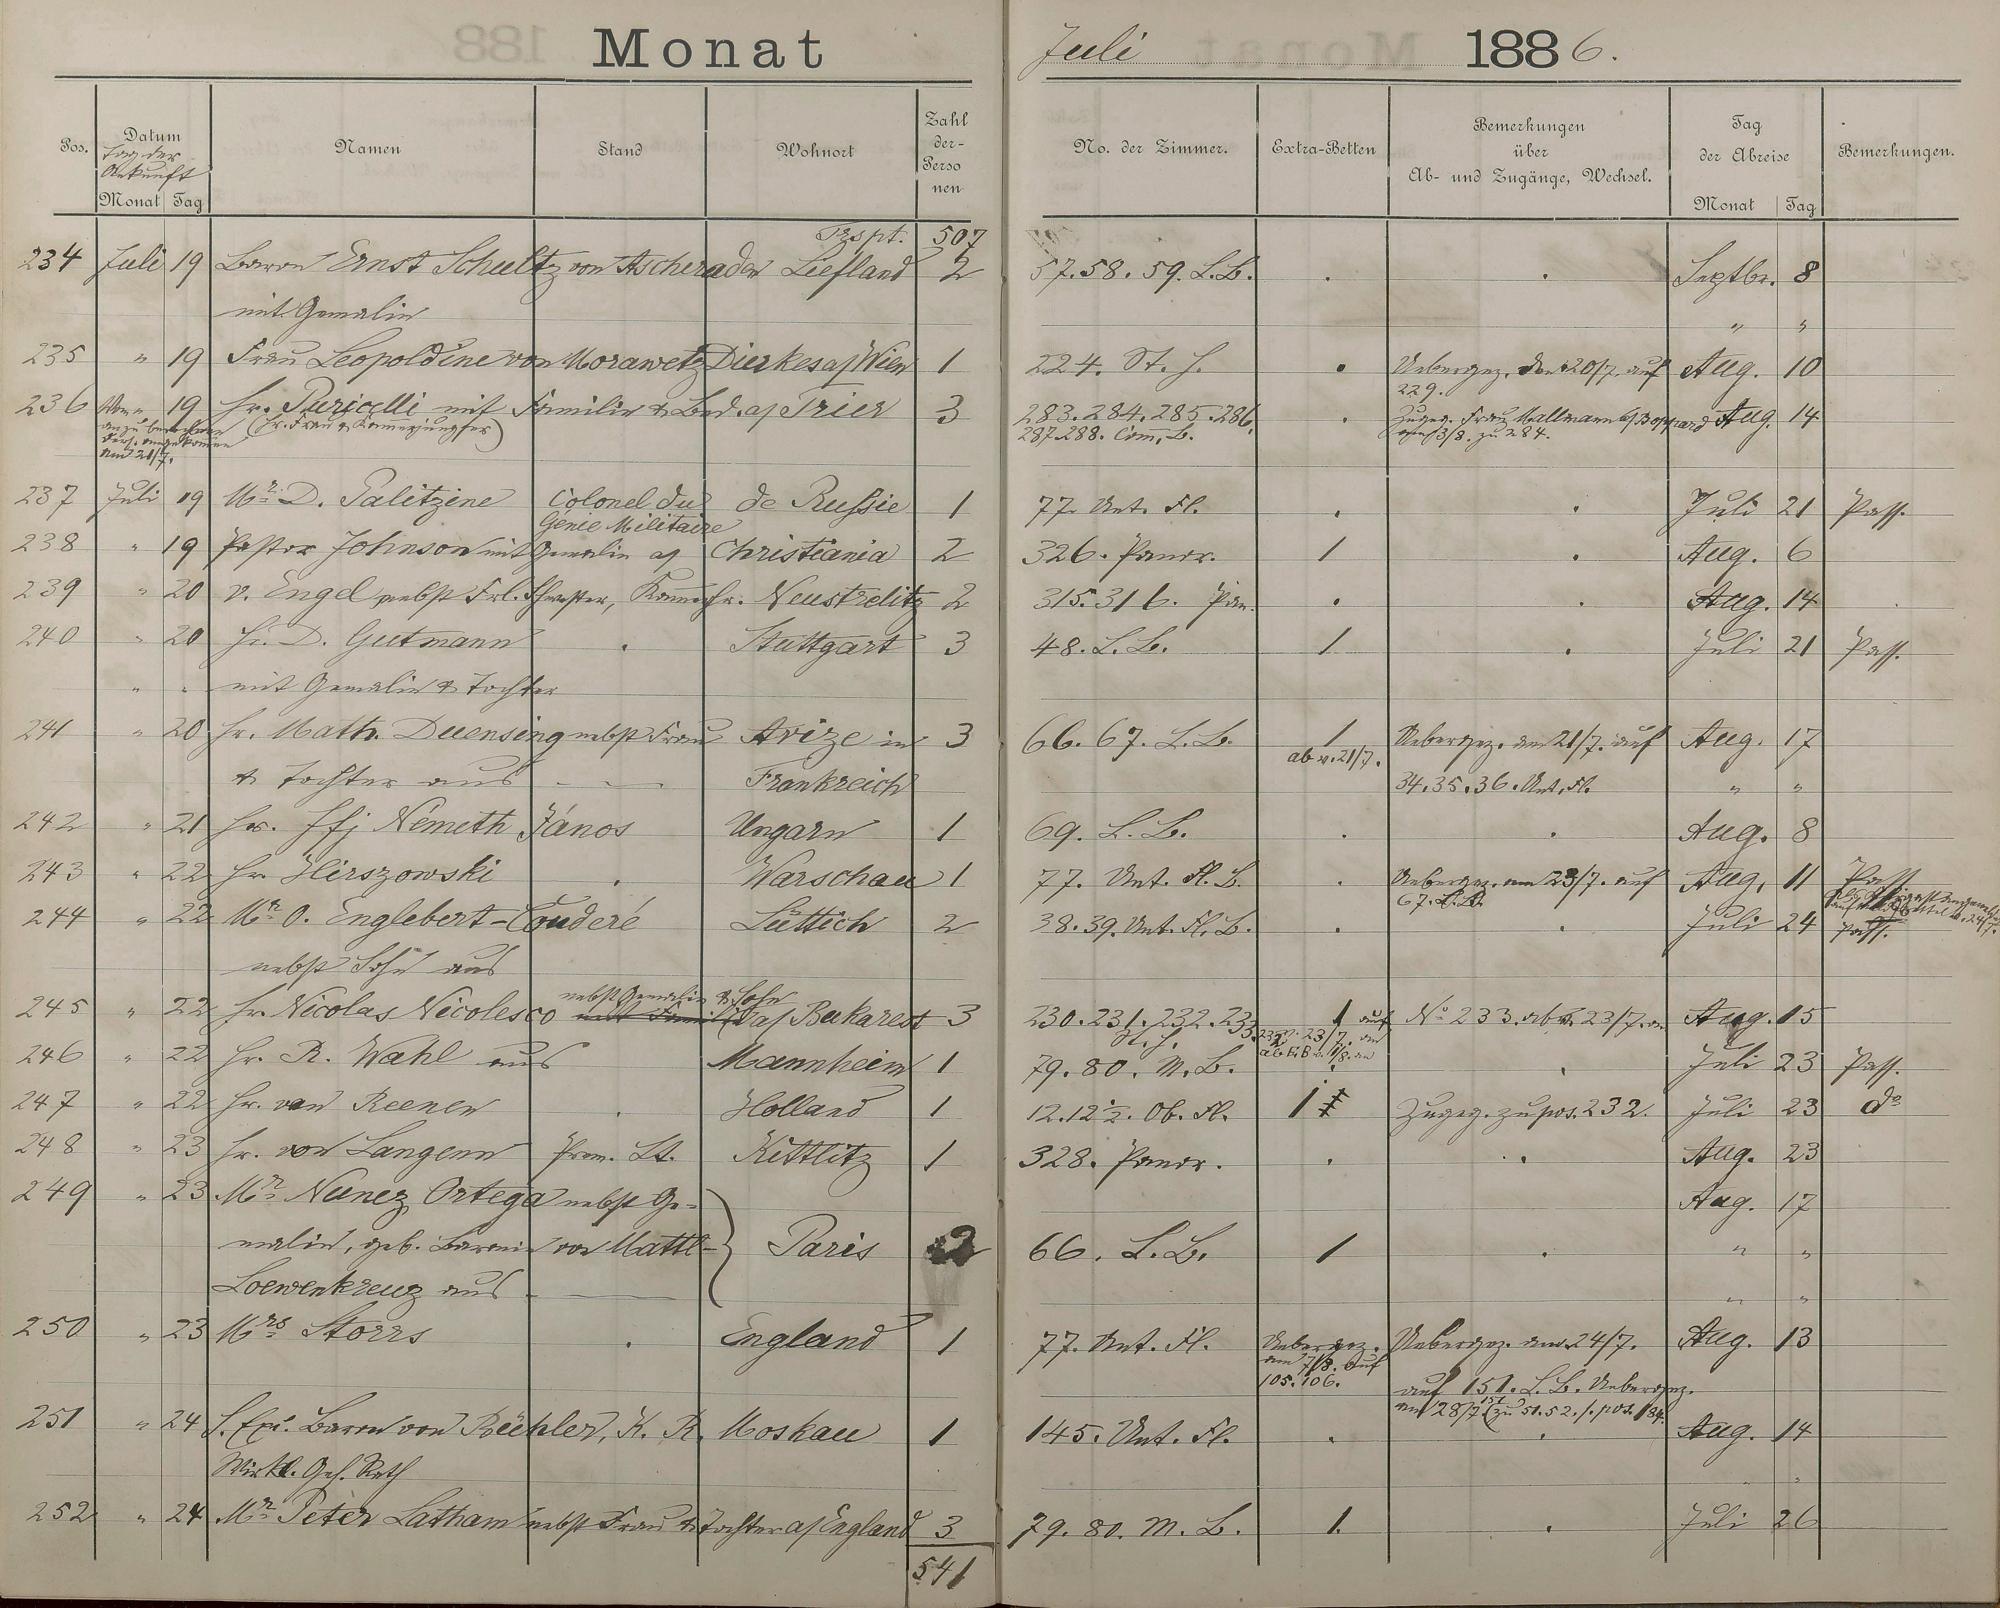 Monat
Juli 1886.
Pos. Datum Namen Stand Wohnort Zahl der Personen No. der Zimmer. Extra-Betten Bemerkungen über Ab- und Zugänge, Wechsel. Tag der Abreise Bemerkungen.
Tag der Ankunft
Monat Tag Monat Tag
Trspt. 507
234 Juli 19 Baron Ernst Schultz von Ascheraden Liefland 2 57.58.59. L.B. . . Septbr. 8
mit Gemalin " "
235 " 19 Frau Leopoldine von Morawetz Dierkes a/ Wien 1 224. St. H. . Uebergez. den 20/7. auf Aug. 10
229.
236 19 Hr. Puricelli mit Familie & Bed. a/ Trier 3 283.284.285.286. . Zugez. Frau Mallmann a/ Boppard Aug. 14
(Hr. Frau & Kammerjungfer) 287.288. Com. B. 3/8. zu 284.
am 21/7.
237 Juli 19 Mr. D. Galitzine Colonel du de Russie 1 77. Unt. Fl. . . Juli 21 Pass.
Génie Militaire
238 " 19 Pastor Johnson mit Gemalin a/ Christiania 2 326. Panor. 1 . Aug. 6
239 " 20 v. Engel nebst Frl. Schwester, Kammerhr. Neustrelitz 2 315.316. Pan. . . Aug. 14
240 " 20 Hr. D. Gutmann . Stuttgart 3 48. L.B. 1 . Juli 21 Pass.
" " mit Gemalin & Tochter
241 " 20 Hr. Math. Duensing nebst Frau Avize in 3 66.67. L.B. 1 Uebergez. am 21/7. auf Aug. 17
& Tochter aus Frankreich ab v. 21/7. 34.35.36. Unt. Fl. " "
242 " 21 Hr. Ifj Németh János Ungarn 1 69. L.B. . . Aug. 8
243 " 22 Hr. Hirszowski . Warschau 1 77. Unt. Fl. B. . Uebergez. am 23/7. auf Aug. 11 Pass.
67. L.B.
244 " 22 Mr. O. Englebert-Couderé Lüttich 2 38.39. Unt. Fl. B. . . Juli 24 Pass.
nebst Sohn aus
nebst Gemalin & Sohn
245 " 22 Hr. Nicolas Nicolesco a/ Bukarest 3 230.231.232.233. 1 auf No 233. ab v. 23/7. an Aug. 15
St. H.
246 " 22 Hr. R. Wahl aus Mannheim 1 79.80. M.B. . . Juli 23 Pass.
247 " 22 Hr. van Reenen . Holland 1 12.12½. Ob. Fl. 1 Zugez. zu pos. 232. Juli 23 do
248 " 23 Hr. von Langenn Prem. Lt. Kittlitz 1 328. Panor. . . Aug. 23
249 " 23 Mr. Nunez Ortega nebst Ge- Aug. 17
malin, geb. Baronin von Mattl- Paris 2 66. L.B. 1 . " "
Loewenkreuz aus " "
250 " 23 Mrs Storrs . England 1 77. Unt. Fl. Uebergez. Uebergez. am 24/7. Aug. 13
am 7/8. auf
105.106. auf 151. L.B. Uebergez.
am 28/7. 151 (zu 51.52. /. pos. 184.
251 " 24 S. Exc. Baron von Büchler, K. R. Moskau 1 145. Unt. Fl. . . Aug. 14
Wirkl. Geh. Rath " "
252 " 24 Mr. Peter Latham nebst Frau & Tochter a/ England 3 79.80. M.B. 1. . Juli 26
541